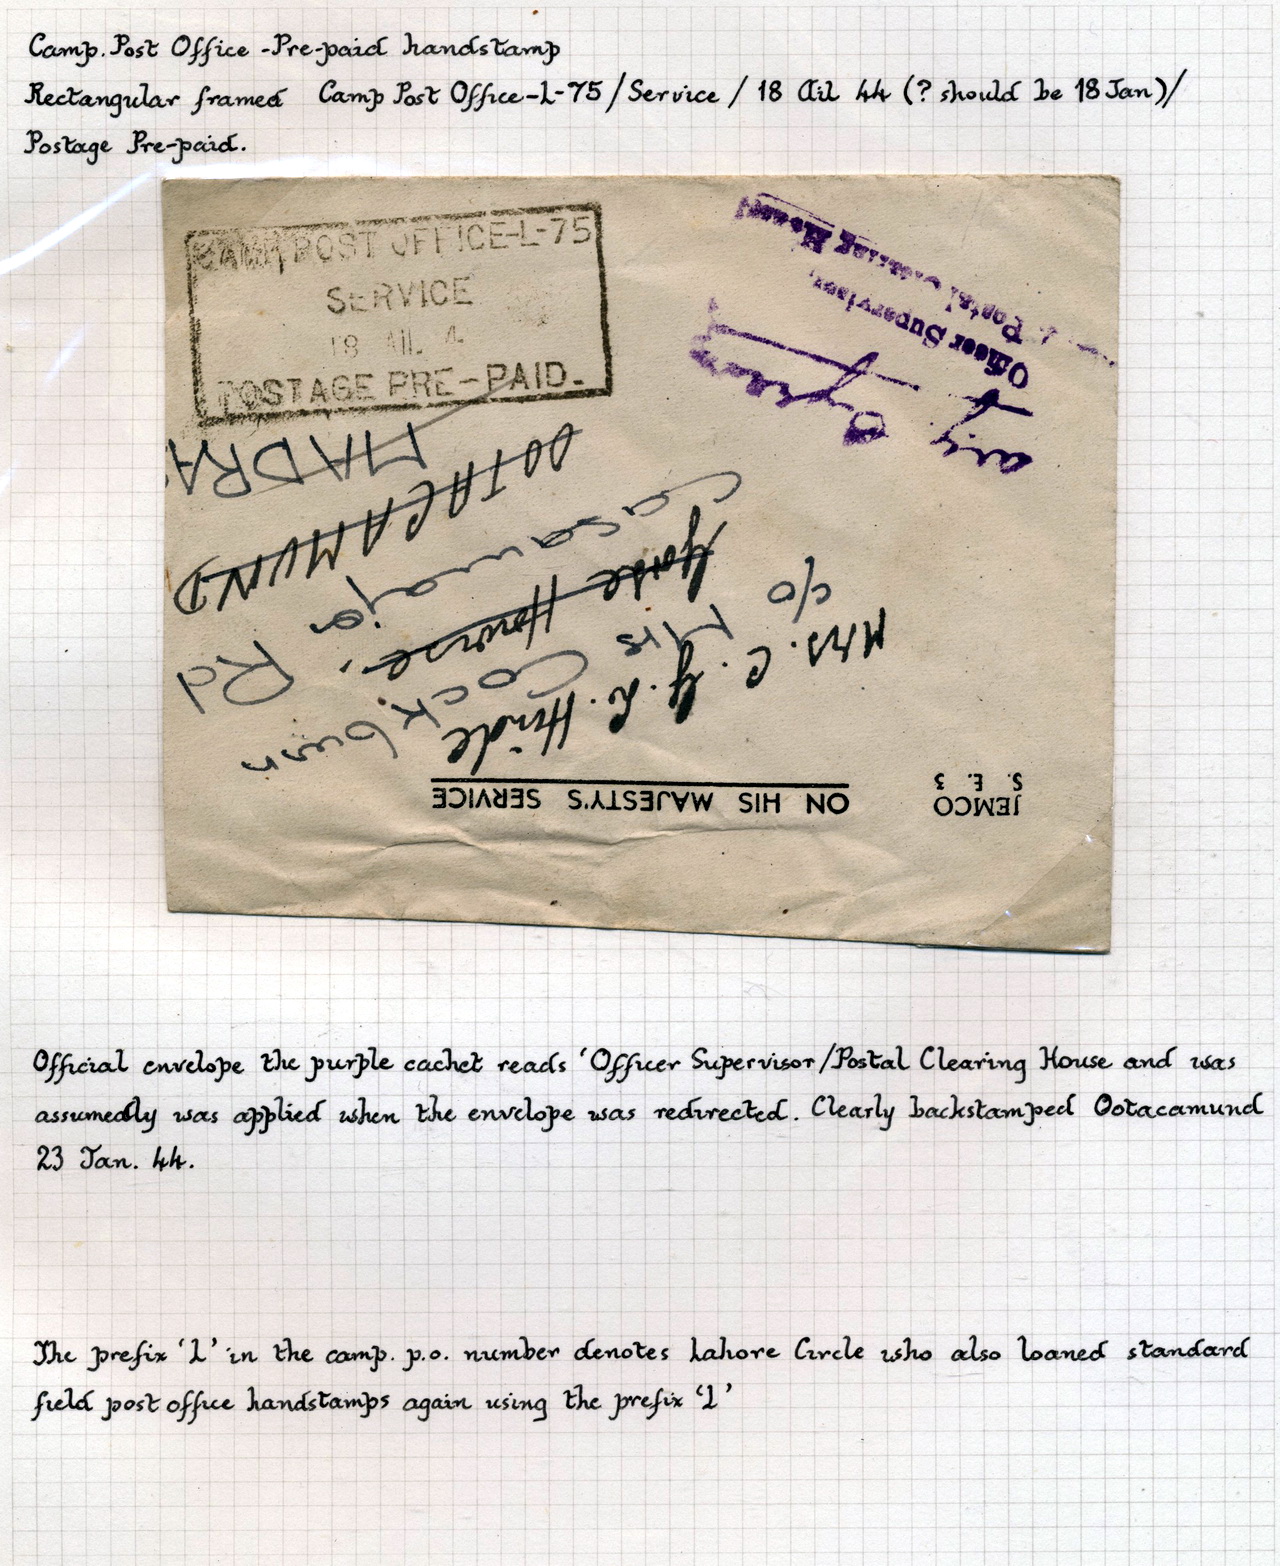 Camp. Post Office - Pre-paid handstamp
Rectangular framed Camp Post Office-L-75/Service/18 Ail 44 (? should be 18 Jan)/
Postage Pre-paid.
CAMP POST OFFICE-L-75
SERVICE
18 AIL 4
POSTAGE PRE-PAID.
Officer Supervisor,
Postal Clearing House
JEMCO
S. E. 3
ON HIS MAJESTY'S SERVICE
Mrs. C. G. L. Hinde
c/o Mrs Cockburn
House.
Casamajor Rd
OOTACAMUND
MADRAS
Official envelope the purple cachet reads 'Officer Supervisor/Postal Clearing House and was
assumedly was applied when the envelope was redirected. Clearly backstamped Ootacamund
23 Jan. 44.
The prefix 'L' in the camp. p.o. number denotes Lahore Circle who also loaned standard
field post office handstamps again using the prefix 'L'